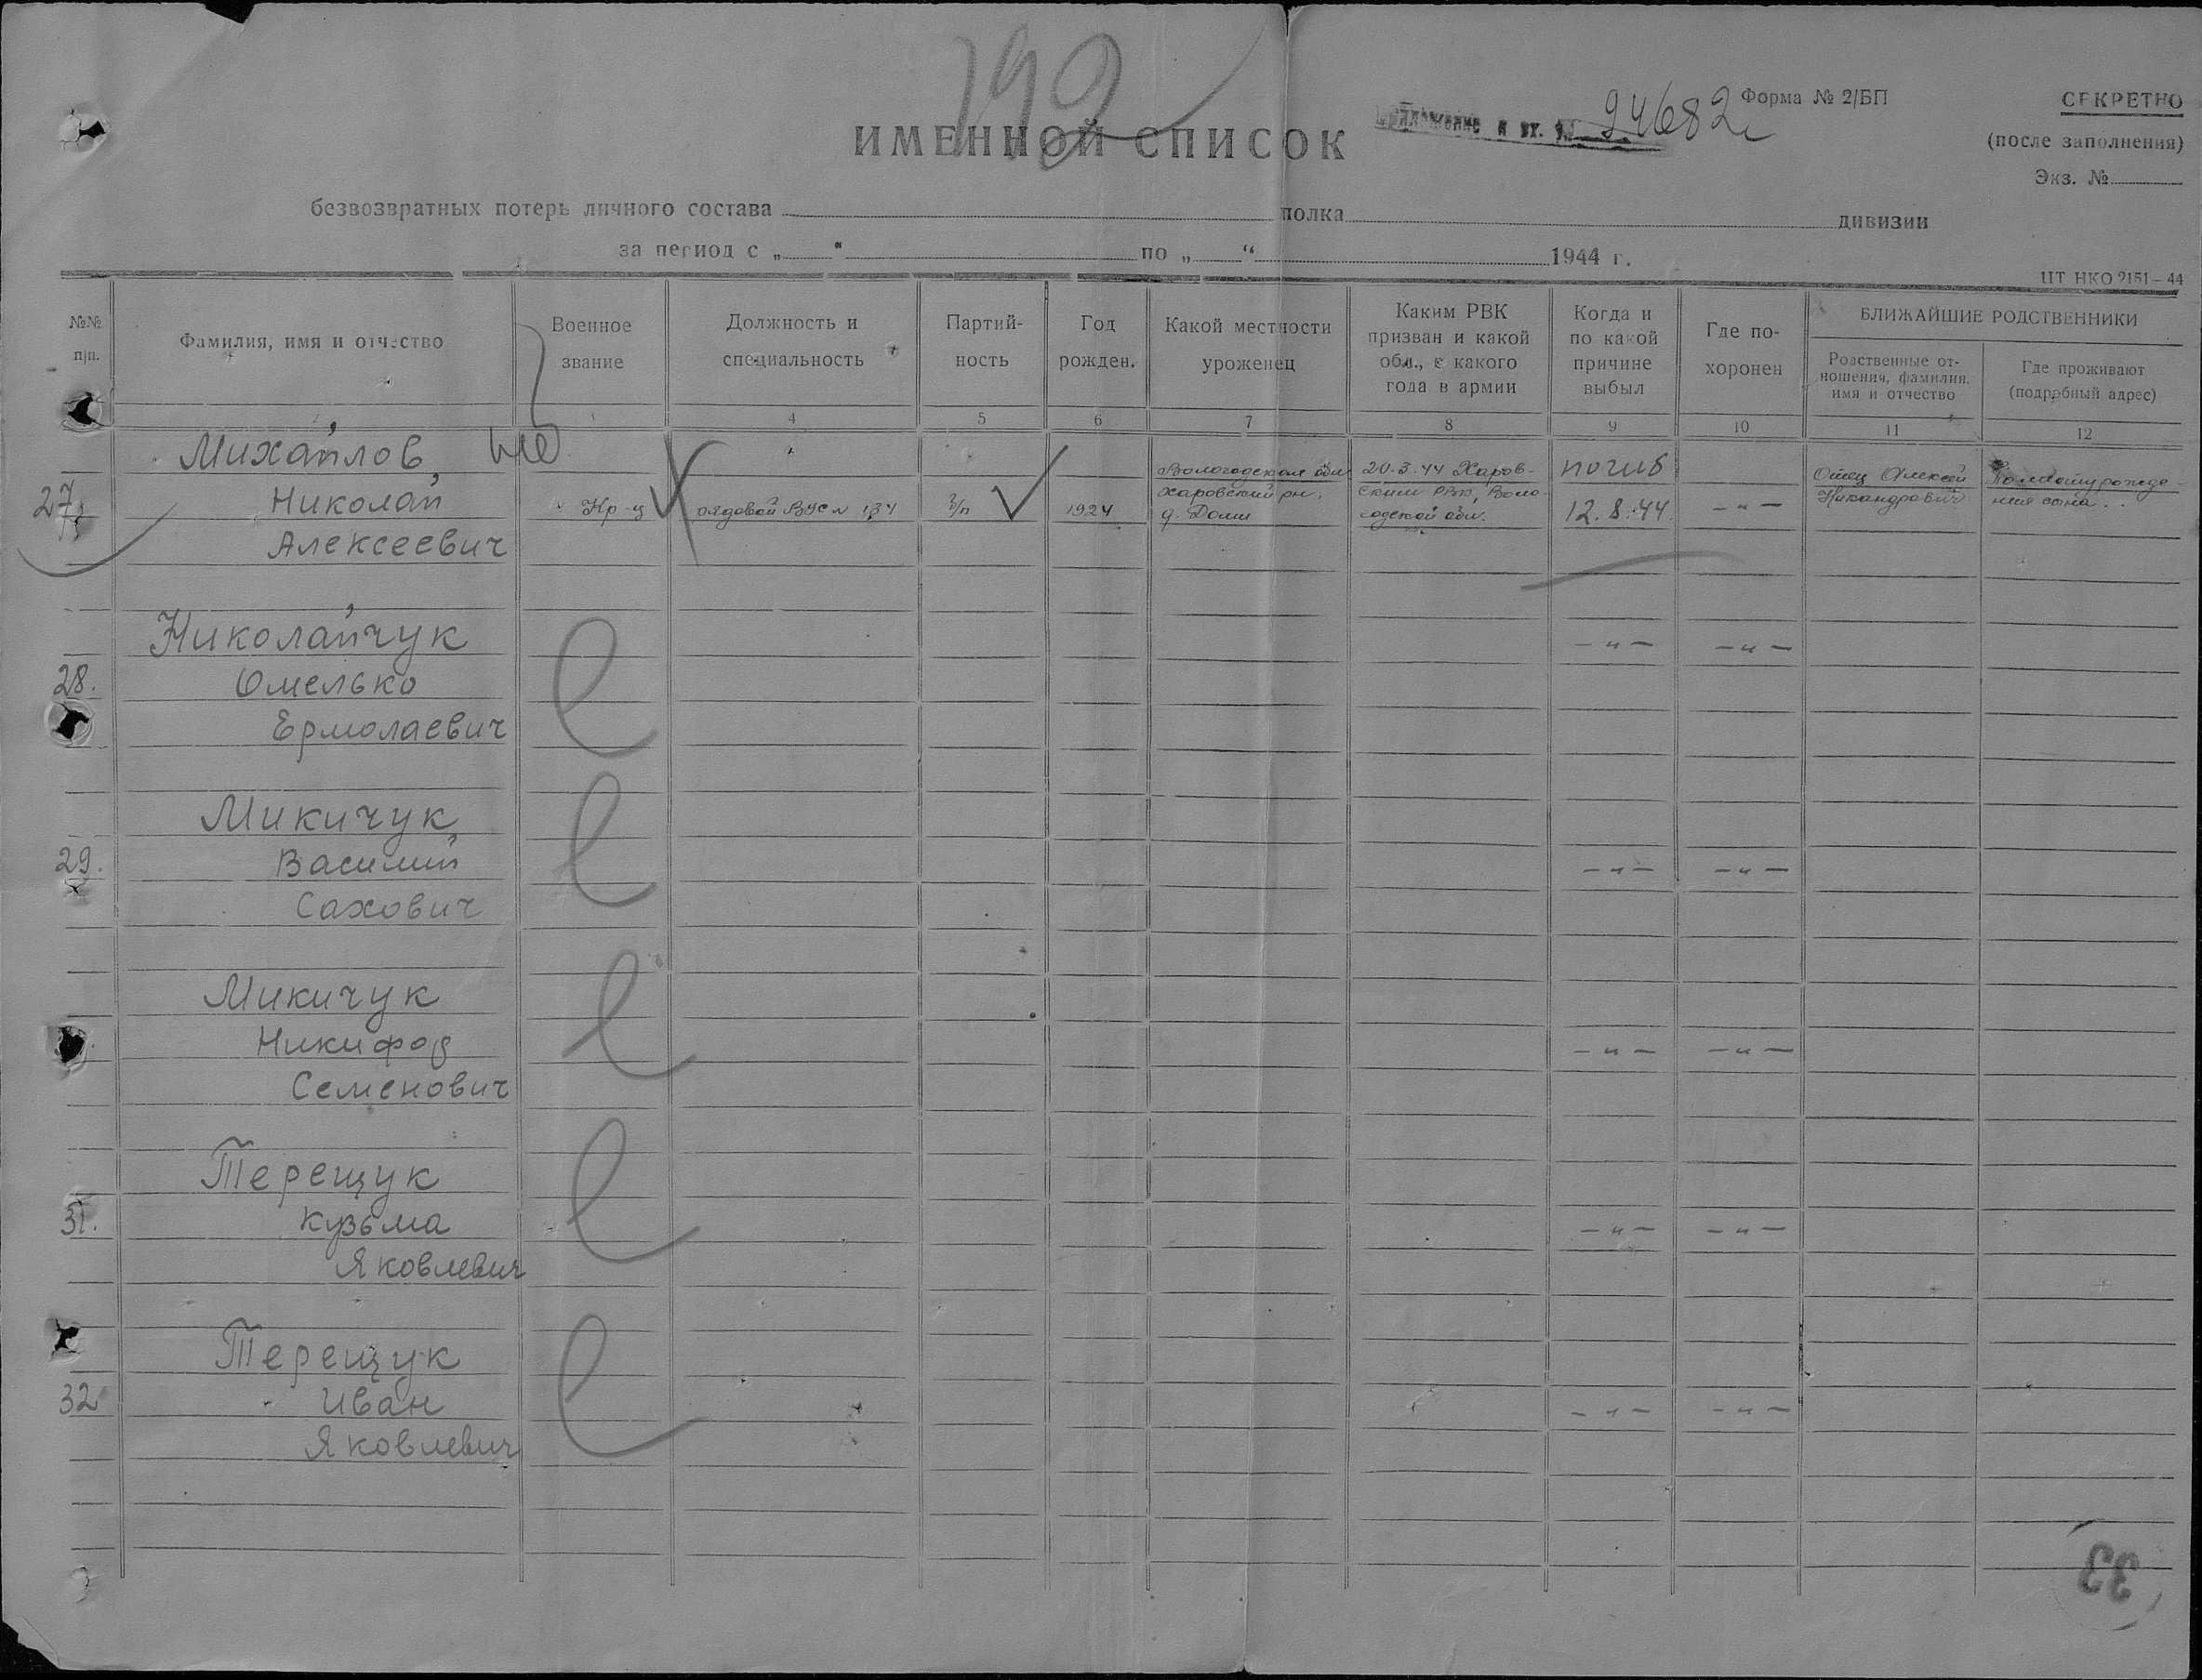 192
Форма № 2/БП
СЕКРЕТНО
Приложение к вх. № 94682с
(после заполнения)
ИМЕННОЙ СПИСОК
Экз. №
безвозвратных потерь личного состава полка дивизии
за период с „ “ по „ “ 1944 г.
ЦТ НКО 2151—44
№№ п/п.
Фамилия, имя и отчество
Военное звание
Должность и специальность
Партий-ность
Год рожден.
Какой местности уроженец
Каким РВК призван и какой обл., с какого года в армии
Когда и по какой причине выбыл
Где по-хоронен
БЛИЖАЙШИЕ РОДСТВЕННИКИ
Родственные от-ношения, фамилия, имя и отчество
Где проживают (подробный адрес)
4 5 6 7 8 9 10 11 12
27.
Михайлов,
Николай
Алексеевич
Кр-ц
рядовой ВУС № 134
б/п
1924
Вологодская обл
Харовский рн.
д. Доми
20.3.44 Харов-
ским РВК, Воло-
годской обл.
погиб
12.8.44
— " —
Отец Алексей
Никандрович
28.
Николайчук
Омелько
Ермолаевич
— " — — " —
29.
Микичук
Василий
Сахович
— " — — " —
Микичук
Никифор
Семенович
— " — — " —
31.
Терещук
Кузьма
Яковлевич
— " — — " —
32
Терещук
Иван
Яковлевич
— " — — " —
33